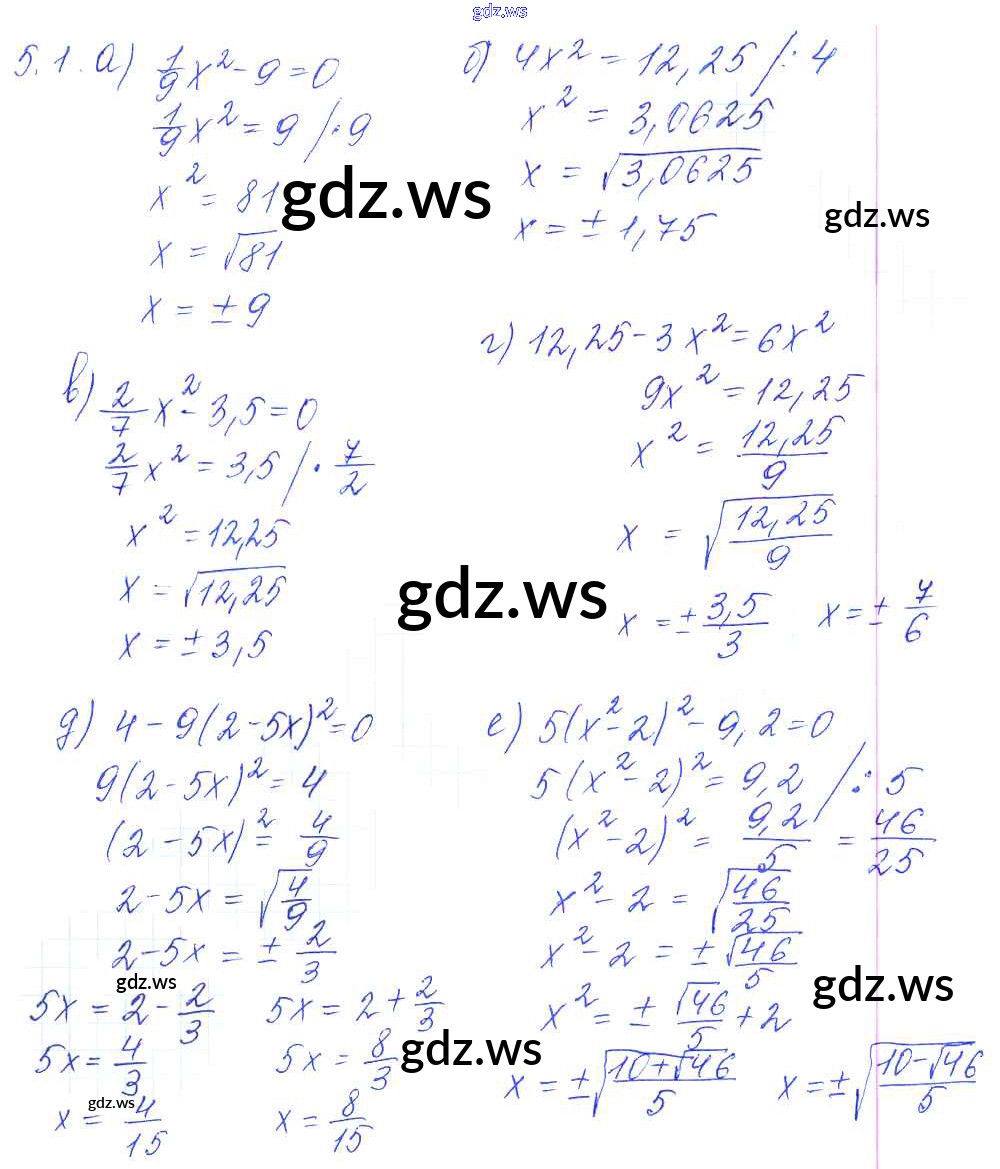 gdz.ws
5.1. а) 1/9 x² - 9 = 0
1/9 x² = 9 /· 9
x² = 81
x = √81
x = ± 9
б) 4x² = 12,25 /: 4
x² = 3,0625
x = √3,0625
x = ± 1,75
gdz.ws
gdz.ws
в) 2/7 x² - 3,5 = 0
2/7 x² = 3,5 /· 7/2
x² = 12,25
x = √12,25
x = ± 3,5
г) 12,25 - 3x² = 6x²
9x² = 12,25
x² = 12,25/9
x = √(12,25/9)
x = ± 3,5/3 x = ± 7/6
gdz.ws
д) 4 - 9(2 - 5x)² = 0
9(2 - 5x)² = 4
(2 - 5x)² = 4/9
2 - 5x = √(4/9)
2 - 5x = ± 2/3
5x = 2 - 2/3 5x = 2 + 2/3
5x = 4/3 5x = 8/3
x = 4/15 x = 8/15
gdz.ws
gdz.ws
е) 5(x² - 2)² - 9,2 = 0
5(x² - 2)² = 9,2 /: 5
(x² - 2)² = 9,2/5 = 46/25
x² - 2 = √(46/25)
x² - 2 = ± √46/5
x² = ± √46/5 + 2
x = ±√((10+√46)/5) x = ±√((10-√46)/5)
gdz.ws
gdz.ws